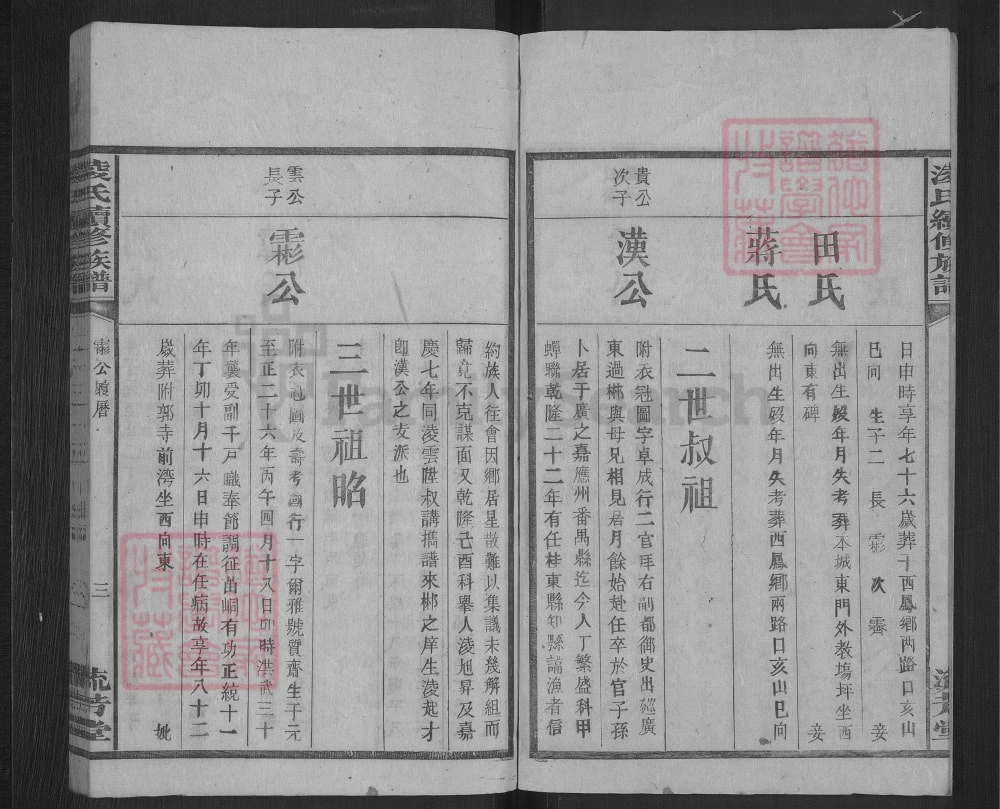 凌氏續修族譜
田氏
蔣氏
日申時享年七十六歲葬于西鳳鄉两路口亥山
巳向 生子二 長霦 次霽 妾
無出生殁年月失考葬本城東門外教塲坪坐西
向東有碑 妾
無出生殁年月失考葬西鳳鄉兩路口亥山巳向
二世叔祖
貴公
次子
漢公
附衣冠圖字卓成行二官拜右副都御史出巡廣
東過郴與母兄相見居月餘始赴任卒於官子孫
卜居于廣之嘉應州番禺縣迄今人丁繁盛科甲
蟬聯乾隆二十二年有任桂東縣知縣諱漁者信
約族人往會因鄉居星散難以集議未幾解組而
歸竟不克謀面又乾隆己酉科舉人淩旭昇及嘉
慶七年同淩雲陞叔講擕譜來郴之庠生淩起才
卽漢公之支派也
三世祖昭
雲公
長子
霦公
附衣冠圖及壽考圖行一字爾雅號質齋生于元
至正二十六年丙午四月十八日卯時洪武三十
年襲受副千戶職奉節調征苗峒有功正統十一
年丁卯十月十六日申時在任病故享年八十二
歲葬附郭寺前灣坐西向東 妣
凌氏續修族譜
霦公履歷
三
流芳堂